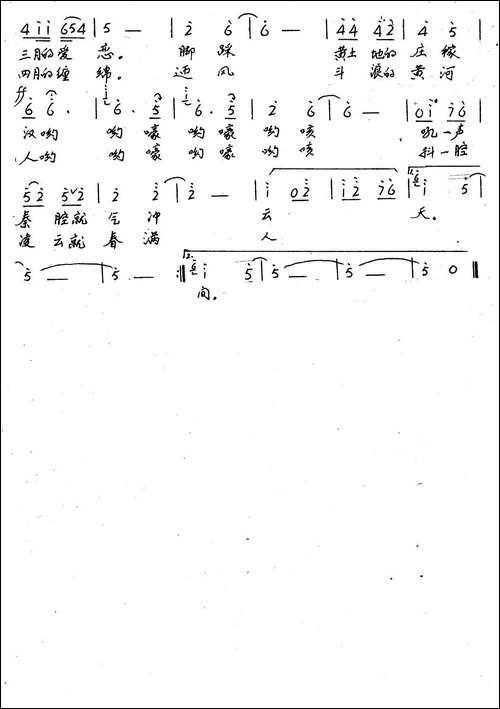 4 i i 6 5 4 | 5 — | 2 6 | 6 — | 4 4 4 2 | 4 5 |
三月的爱 恋。 脚 踩 黄土 地的 庄 稼
四月的缠 绵。 迎 风 斗 浪的 黄 河
ff
6 6 · | 6 · 5 | 6 · 5 | 2 6 | 6 — | 0 i 7 6 |
汉哟 哟 嚎 哟 嚎 哟 咳 吼一声
人哟 哟 嚎 哟 嚎 哟 咳 抖一腔
1.
5 2 5 2 | 2 2 | 2 — | i 0 2 | i 2 7 6 | i 5 |
秦 腔就 气 冲 云 天。
凌 云就 春 满 人
2.
5 — | 5 — :‖ i 5 | 5 — | 5 — | 5 0 ‖
间。